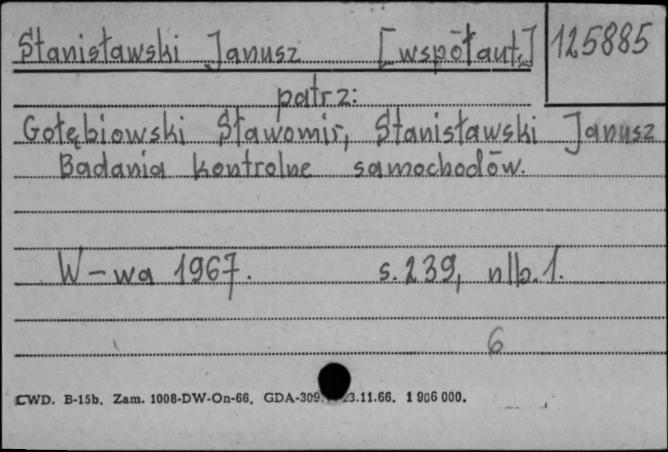 Stanisławski Janusz [współaut.] 125885
patrz:
Gołębiowski Sławomir, Stanisławski Janusz
Badania kontrolne samochodów.
W-wa 1967. s. 239, nlb. 1.
6
CWD. B-15b. Zam. 1008-DW-On-66. GDA-309. 23.11.66. 1 906 000.